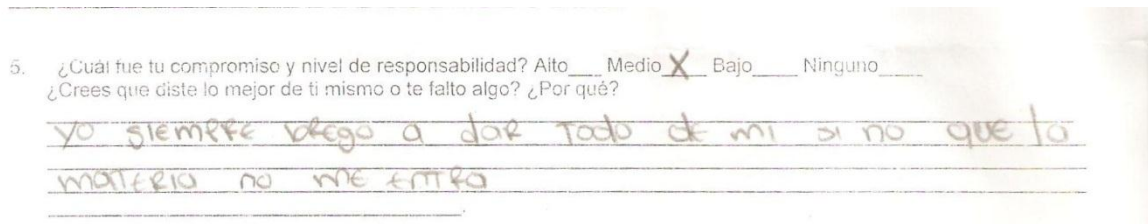 5. ¿Cuál fue tu compromiso y nivel de responsabilidad? Alto____ Medio_X_ Bajo____ Ninguno____
¿Crees que diste lo mejor de ti mismo o te falto algo? ¿Por qué?
yo siempre brego a dar todo de mi si no que la
materia no me entra